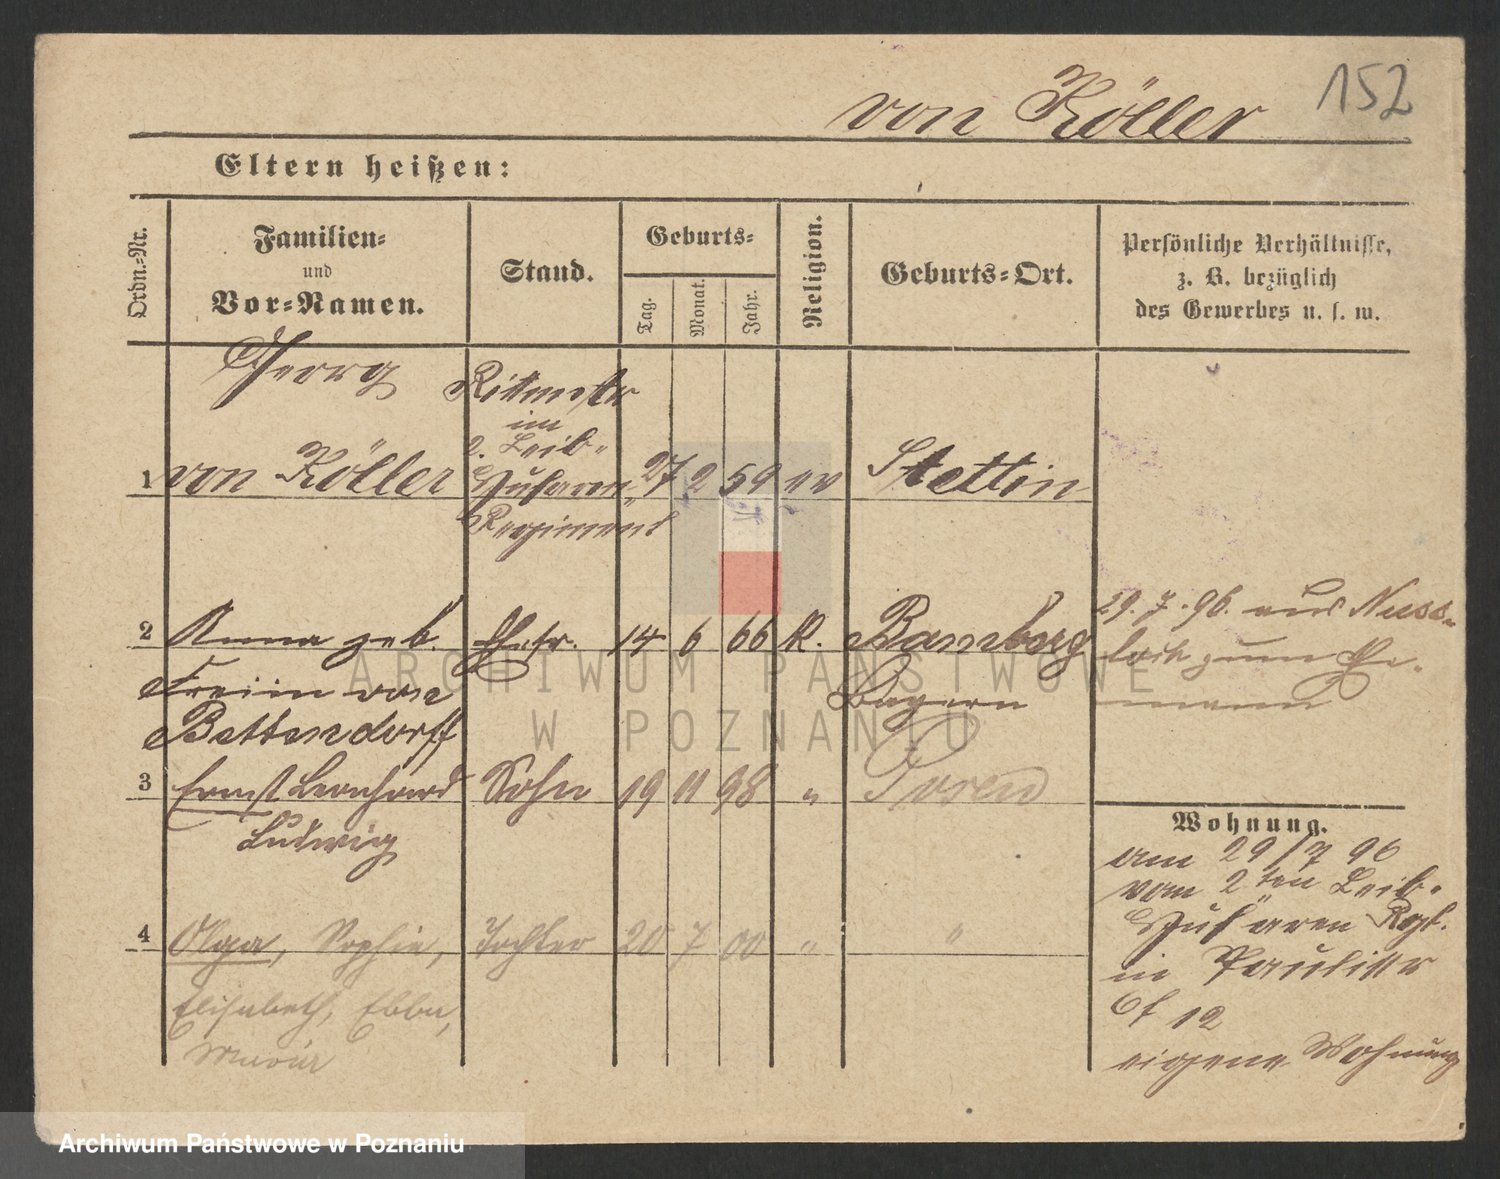 152
von Köller
Eltern heißen:
Ordn.-Nr.
Familien-
und
Vor-Namen.
Stand.
Geburts-
Tag.
Monat.
Jahr.
Religion.
Geburts-Ort.
Persönliche Verhältnisse,
z. B. bezüglich
des Gewerbes u. s. w.
Georg
Rittmstr
im
2. Leib-
1 von Köller Husaren- 27 2 59 ev Stettin
Regiment
2 Anna geb. Ehefr. 14 6 66 k. Bamberg
Freiin von Bayern
Bettendorff
29.7.96. aus Nuss-
loch zum Ehe-
mann
3 Ernst Leonhard Sohn 19 11 98 " Posen
Ludwig
4 Olga, Sophie, Tochter 20 7 00 " "
Elisabeth, Ebba,
Wohnung.
am 29/7 96
vom 2ten Leib-
Husaren Rgt.
in Paulistr
12
eigene Wohnung
ARCHIWUM PAŃSTWOWE
W POZNANIU
Archiwum Państwowe w Poznaniu